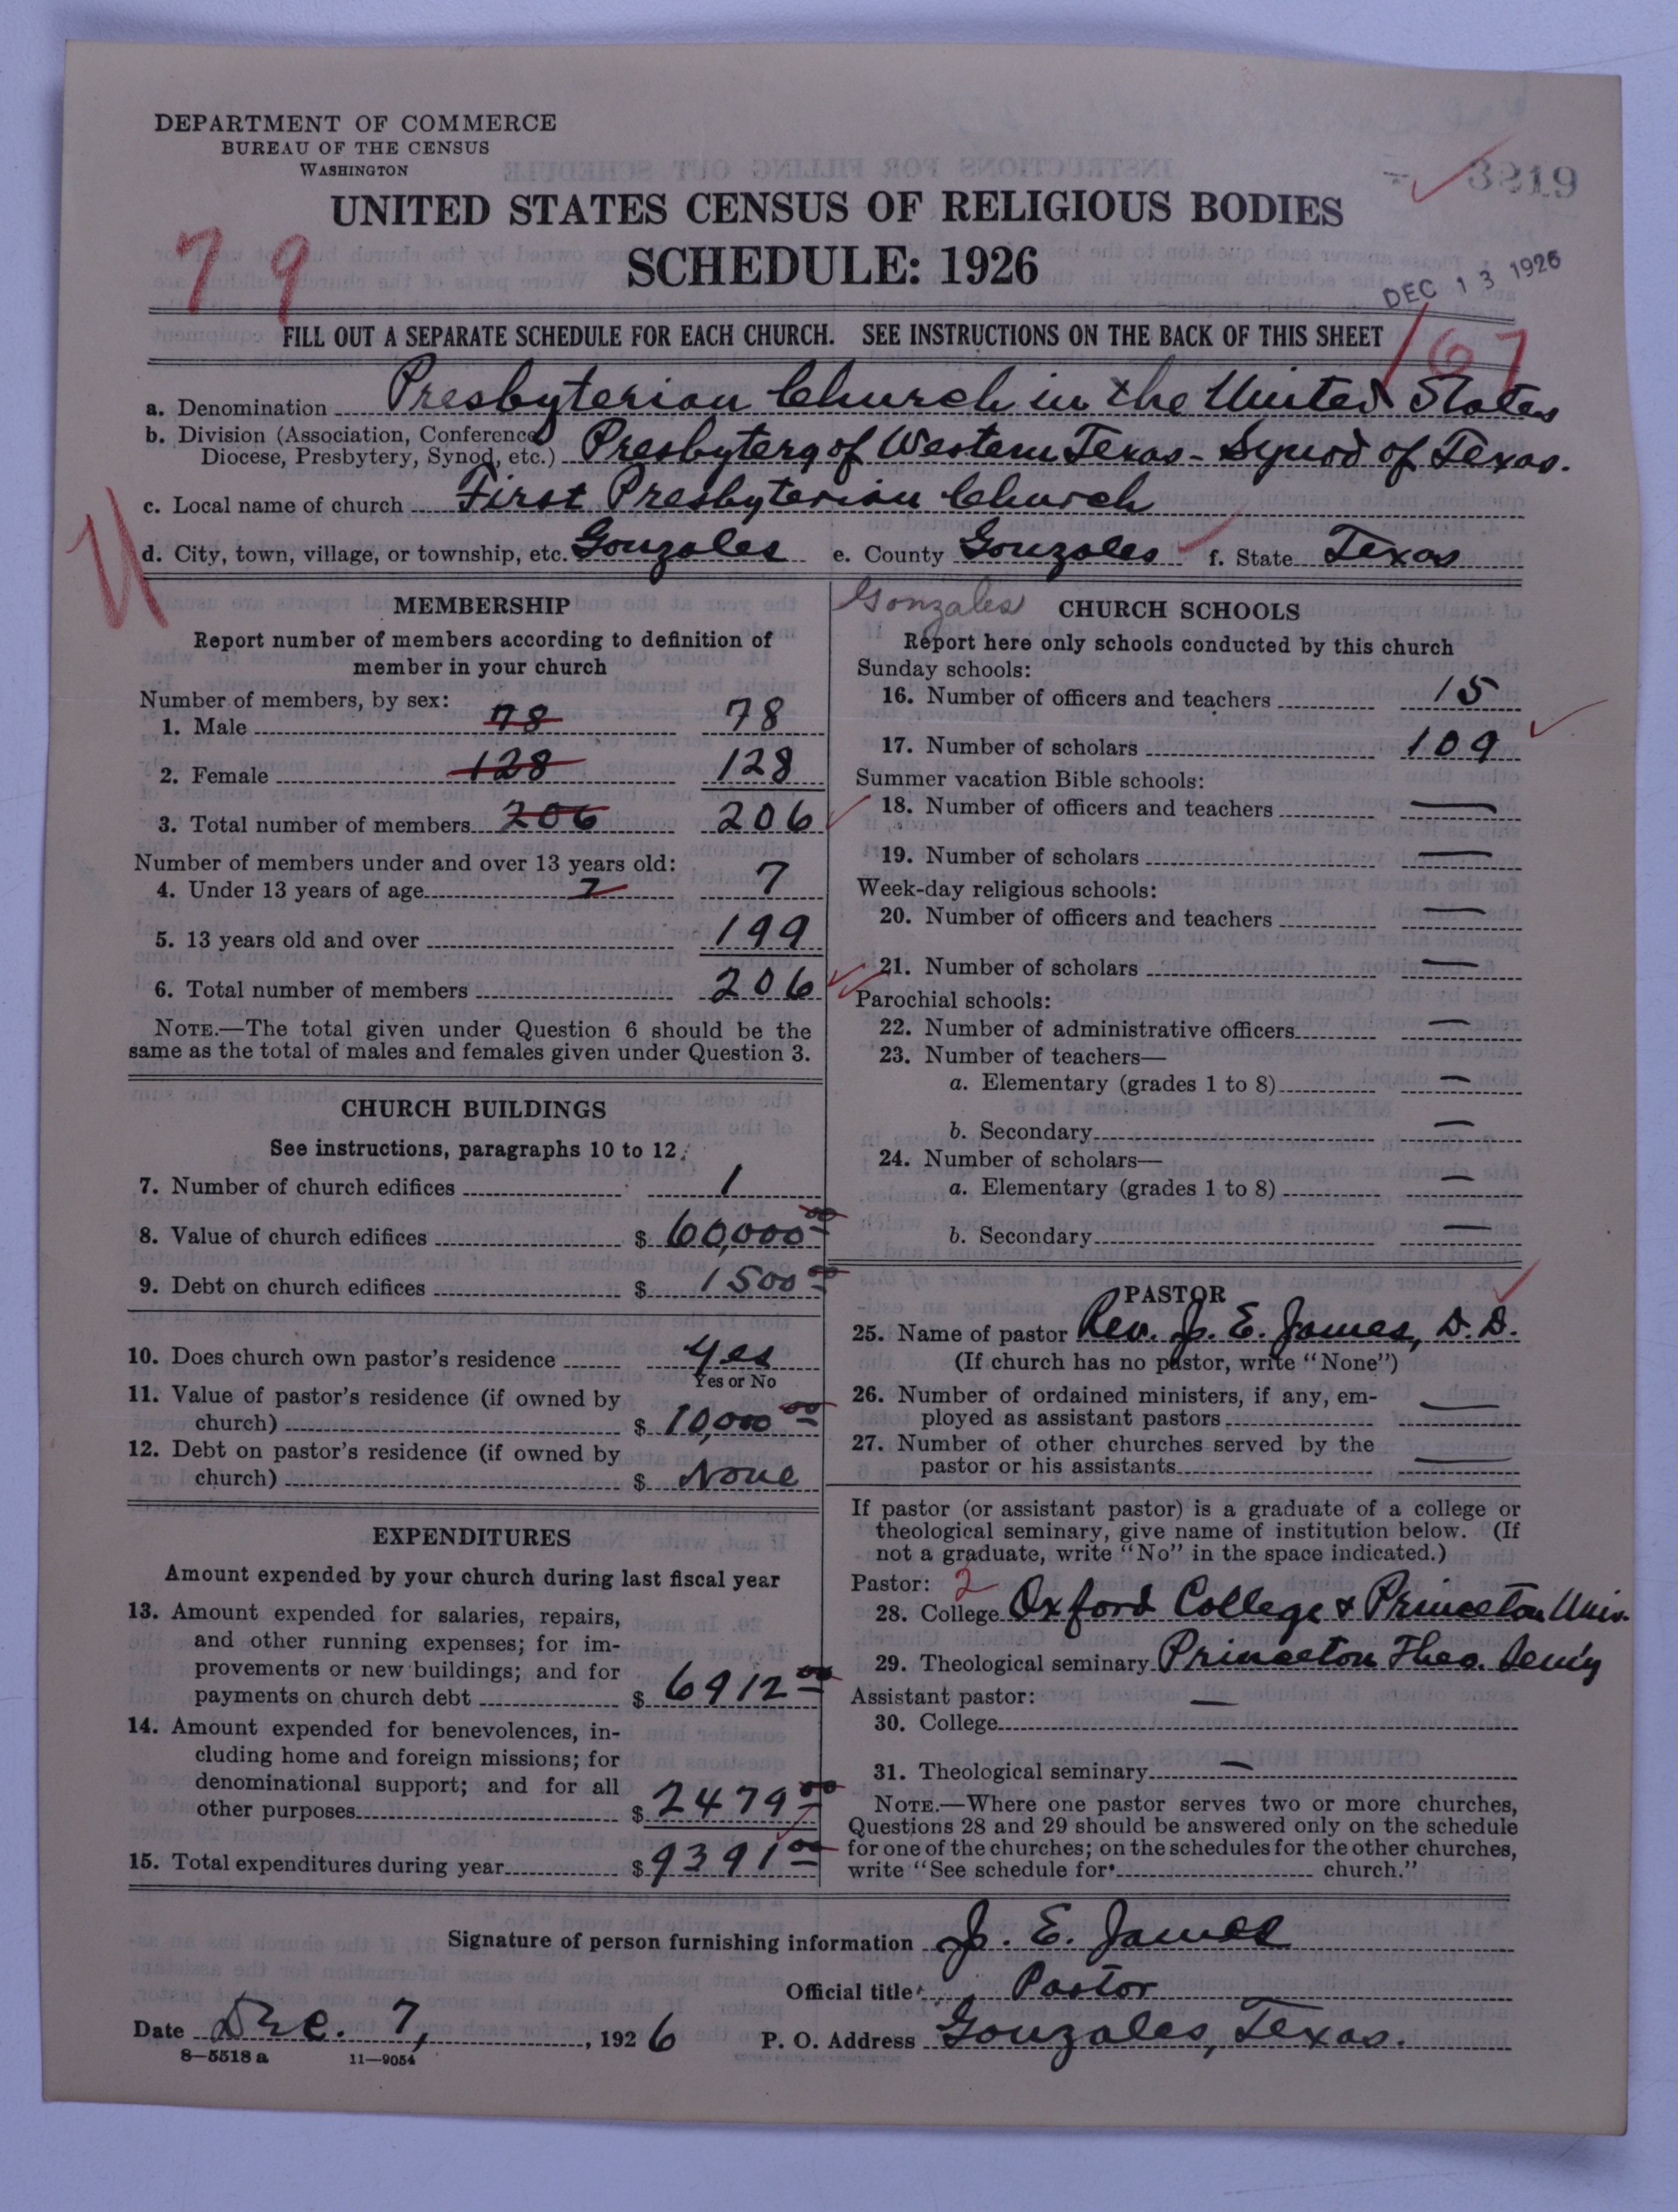 DEPARTMENT OF COMMERCE
BUREAU OF THE CENSUS
WASHINGTON
3219
UNITED STATES CENSUS OF RELIGIOUS BODIES
SCHEDULE: 1926
79
DEC 13 1926
FILL OUT A SEPARATE SCHEDULE FOR EACH CHURCH. SEE INSTRUCTIONS ON THE BACK OF THIS SHEET
167
a. Denomination Presbyterian Church in the United States
b. Division (Association, Conference,
Diocese, Presbytery, Synod, etc.) Presbytery of Western Texas - Synod of Texas.
c. Local name of church First Presbyterian Church
d. City, town, village, or township, etc. Gonzales e. County Gonzales f. State Texas
MEMBERSHIP
Report number of members according to definition of
member in your church
Number of members, by sex:
1. Male 78 78
2. Female 128 128
3. Total number of members 206 206
Number of members under and over 13 years old:
4. Under 13 years of age 7 7
5. 13 years old and over 199
6. Total number of members 206
NOTE.—The total given under Question 6 should be the
same as the total of males and females given under Question 3.
CHURCH BUILDINGS
See instructions, paragraphs 10 to 12.
7. Number of church edifices 1
8. Value of church edifices $ 60,000 00
9. Debt on church edifices $ 1500 00
10. Does church own pastor's residence Yes
Yes or No
11. Value of pastor's residence (if owned by
church) $ 10,000 00
12. Debt on pastor's residence (if owned by
church) $ None
EXPENDITURES
Amount expended by your church during last fiscal year
13. Amount expended for salaries, repairs,
and other running expenses; for im-
provements or new buildings; and for
payments on church debt $ 6912 00
14. Amount expended for benevolences, in-
cluding home and foreign missions; for
denominational support; and for all
other purposes $ 2479 00
15. Total expenditures during year $ 9391 00
Gonzales CHURCH SCHOOLS
Report here only schools conducted by this church
Sunday schools:
16. Number of officers and teachers 15
17. Number of scholars 109
Summer vacation Bible schools:
18. Number of officers and teachers —
19. Number of scholars —
Week-day religious schools:
20. Number of officers and teachers —
21. Number of scholars —
Parochial schools:
22. Number of administrative officers —
23. Number of teachers—
a. Elementary (grades 1 to 8) —
b. Secondary —
24. Number of scholars—
a. Elementary (grades 1 to 8) —
b. Secondary —
PASTOR
25. Name of pastor Rev. J. E. James, D. D.
(If church has no pastor, write "None")
26. Number of ordained ministers, if any, em-
ployed as assistant pastors —
27. Number of other churches served by the
pastor or his assistants —
If pastor (or assistant pastor) is a graduate of a college or
theological seminary, give name of institution below. (If
not a graduate, write "No" in the space indicated.)
Pastor: 2
28. College Oxford College & Princeton Univ.
29. Theological seminary Princeton Theo. Semy
Assistant pastor: —
30. College
31. Theological seminary —
NOTE.—Where one pastor serves two or more churches,
Questions 28 and 29 should be answered only on the schedule
for one of the churches; on the schedules for the other churches,
write "See schedule for church."
Signature of person furnishing information J. E. James
Official title Pastor
Date Dec. 7, , 1926 P. O. Address Gonzales, Texas.
8—5518 a 11—9054